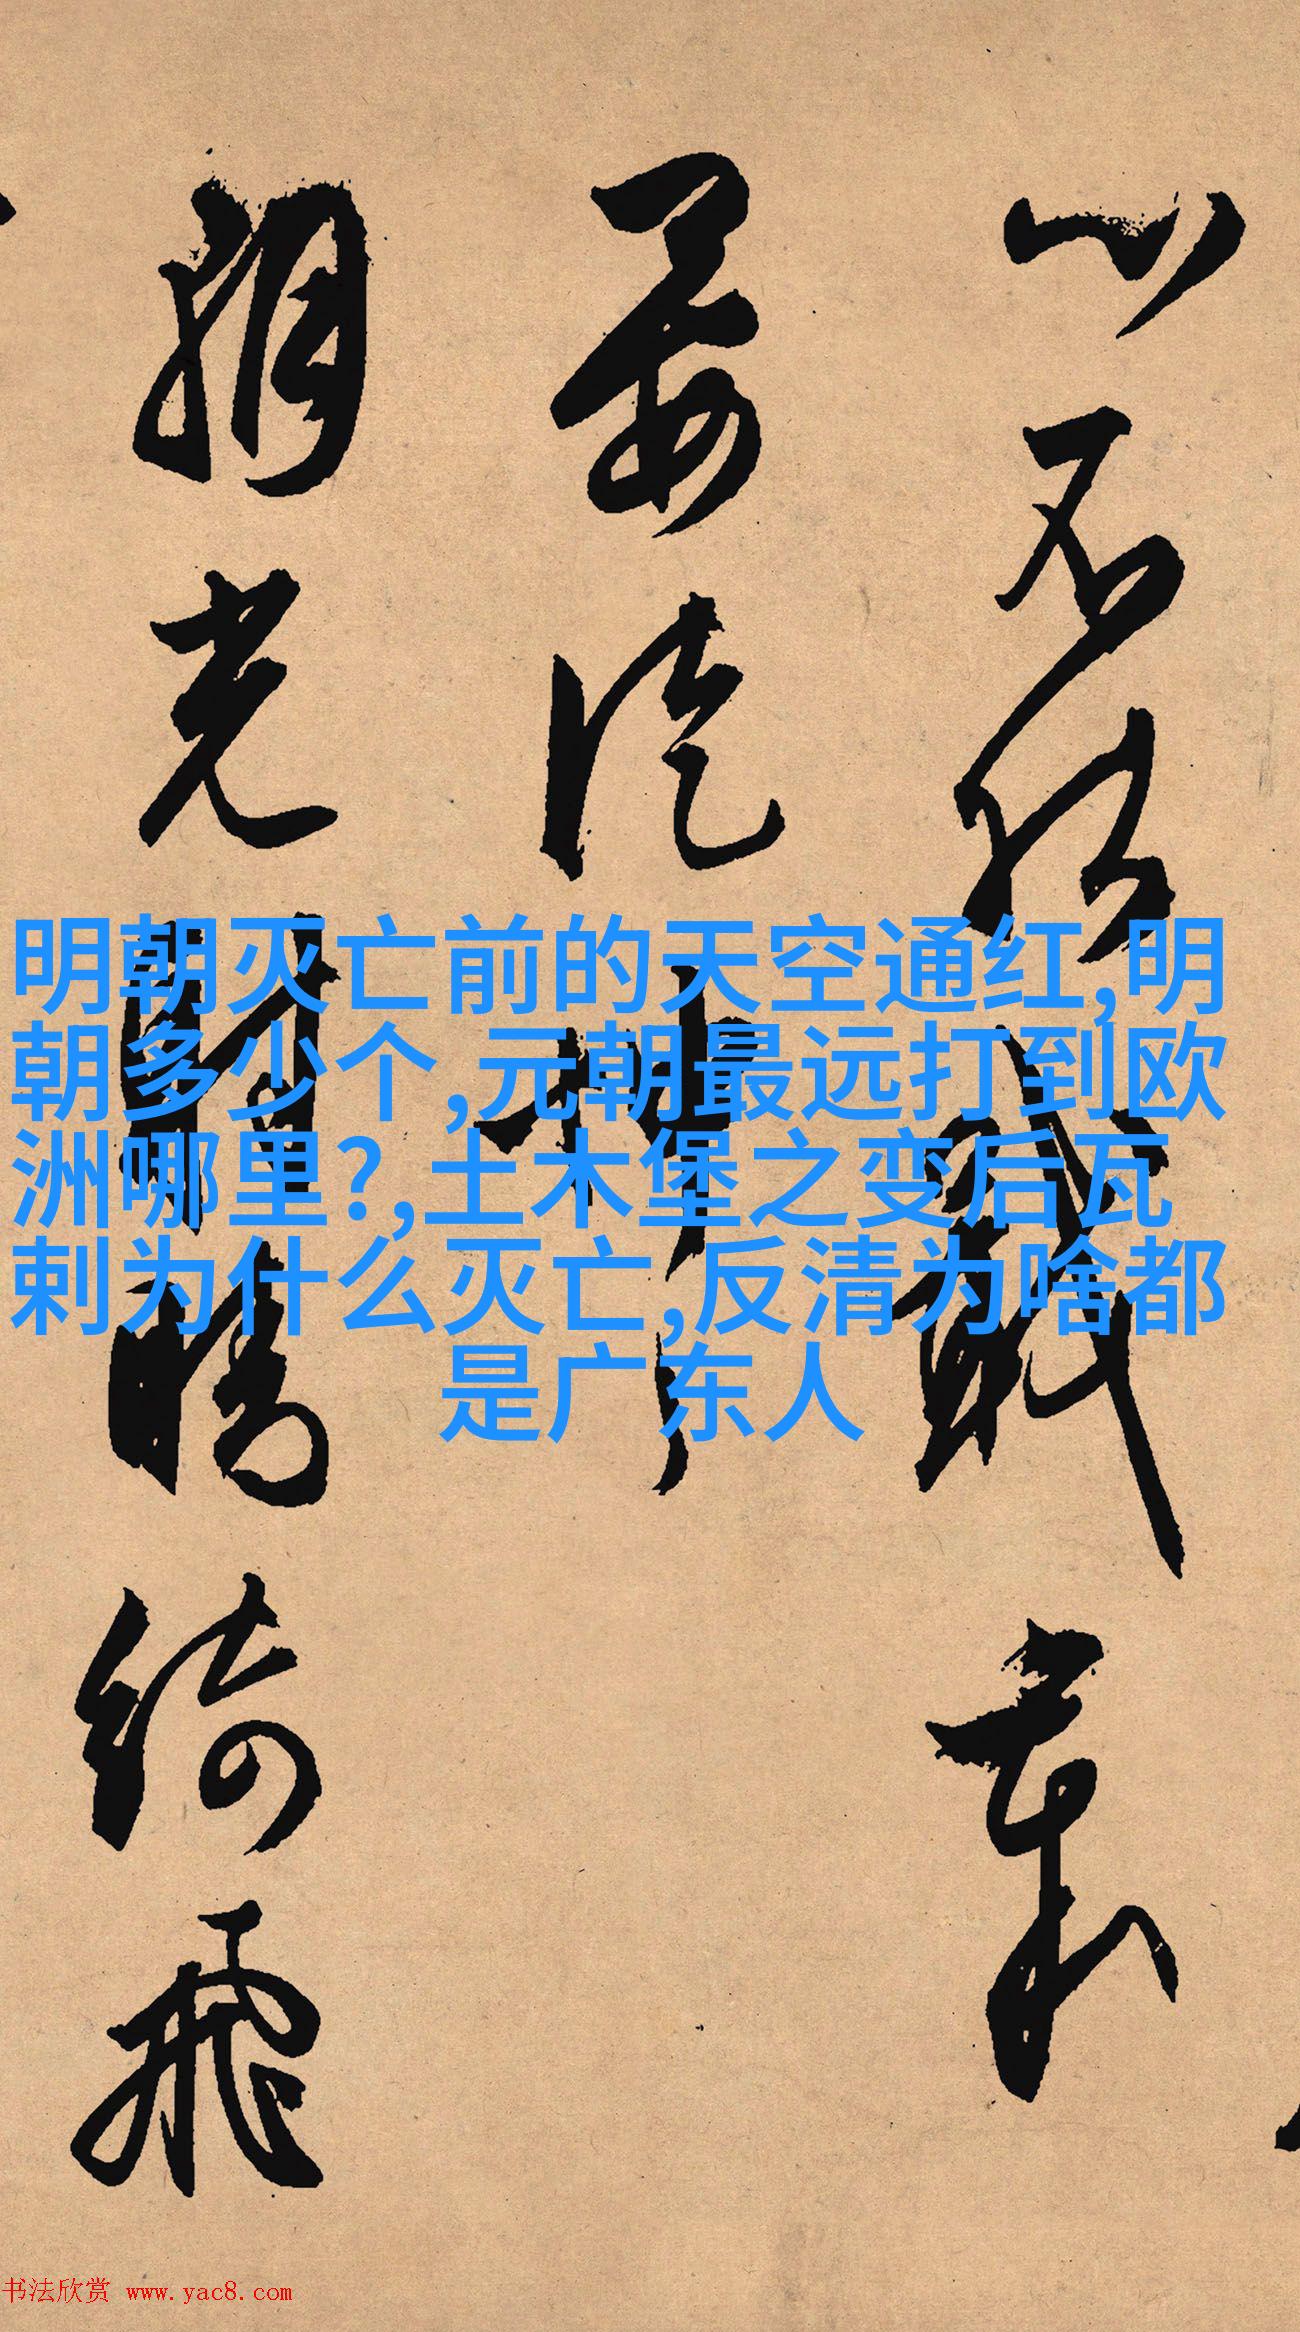 心不能戢辄
要从
湖光开晴绮飞
明朝灭亡前的天空通红,明
朝多少个,元朝最远打到欧
洲哪里?,土木堡之变后瓦
剌为什么灭亡,反清为啥都
是广东人
书法欣赏 www.yac8.com